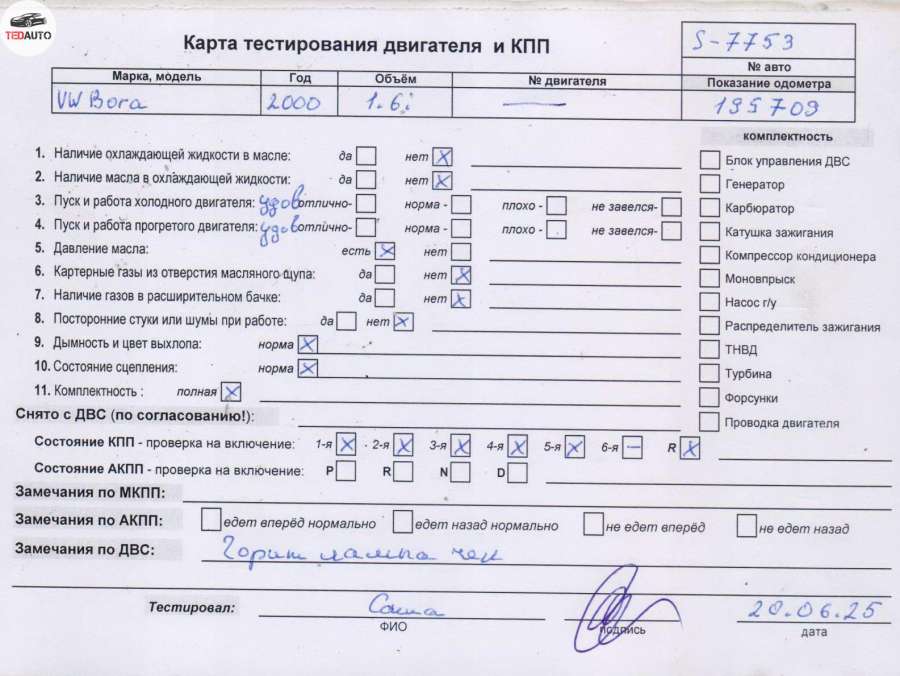 TEDAUTO
Карта тестирования двигателя и КПП
S-7753
№ авто
Марка, модель Год Объём № двигателя Показание одометра
VW Bora 2000 1.6i — 195709
комплектность
1. Наличие охлаждающей жидкости в масле: да нет X
Блок управления ДВС
2. Наличие масла в охлаждающей жидкости: да нет X
Генератор
3. Пуск и работа холодного двигателя: удов отлично- норма - плохо - не завелся-
Карбюратор
4. Пуск и работа прогретого двигателя: удов отлично- норма - плохо - не завелся-
Катушка зажигания
5. Давление масла: есть X нет
Компрессор кондиционера
6. Картерные газы из отверстия масляного щупа: да нет X
Моновпрыск
7. Наличие газов в расширительном бачке: да нет X
Насос г/у
8. Посторонние стуки или шумы при работе: да нет X
Распределитель зажигания
9. Дымность и цвет выхлопа: норма X
ТНВД
10. Состояние сцепления: норма X
Турбина
11. Комплектность : полная X
Форсунки
Снято с ДВС (по согласованию!):
Проводка двигателя
Состояние КПП - проверка на включение: 1-я X 2-я X 3-я X 4-я X 5-я X 6-я — R X
Состояние АКПП - проверка на включение: P R N D
Замечания по МКПП:
Замечания по АКПП: едет вперёд нормально едет назад нормально не едет вперёд не едет назад
Замечания по ДВС: Горит лампа чек
Тестировал: Саша 20.06.25
ФИО подпись дата